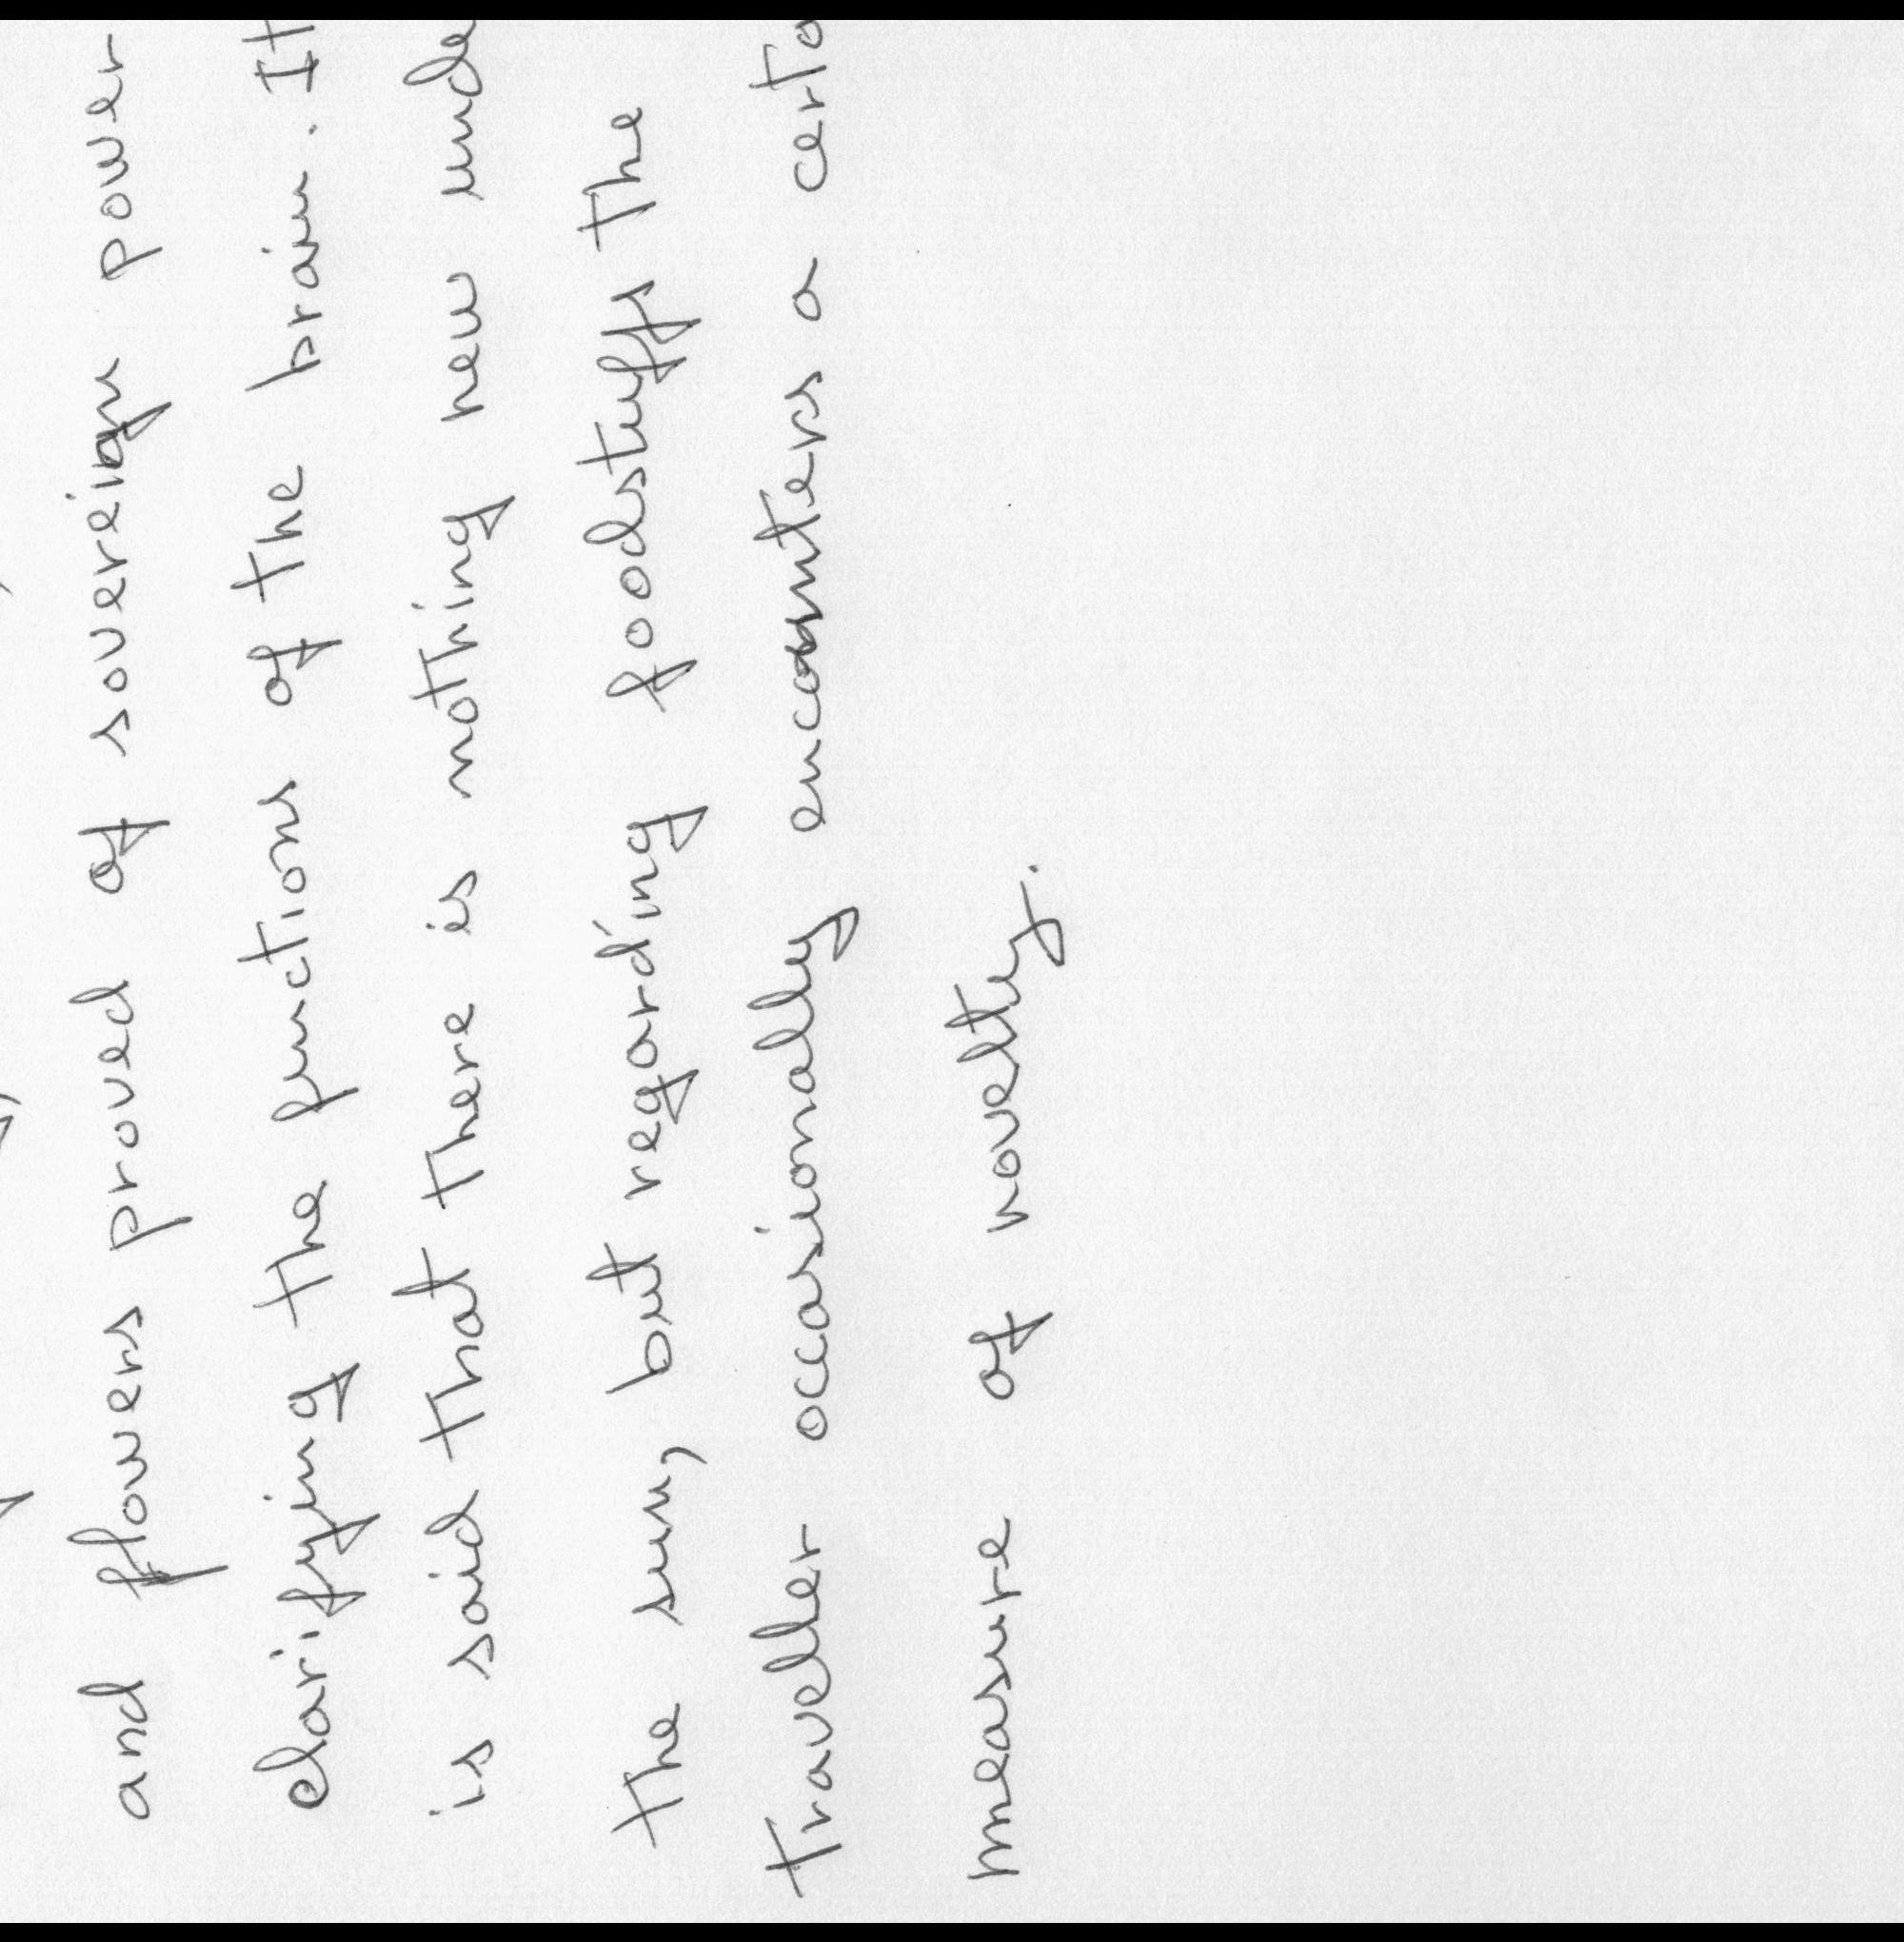 and flowers proved of sovereign power
clarifying the functions of the brain. It
is said that there is nothing new unde
the sun, but regarding foodstuffs the
traveller occasionally encounters a certa
measure of novelty.